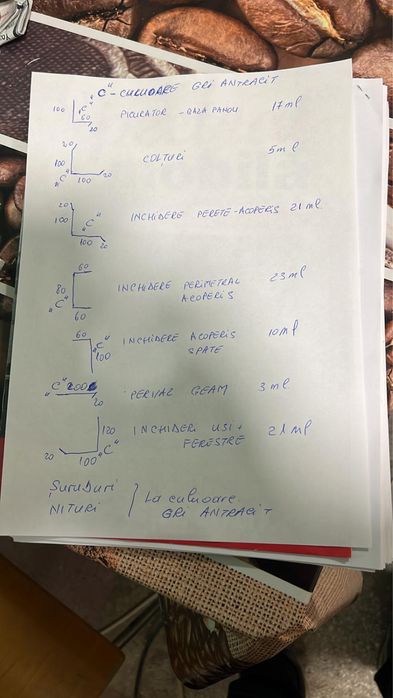 "C" - CULUOARE GRI ANTRACIT
100 "C" 60 20 PICURATOR - BAZA PANOU 17 ml
20 100 "C" 100 20 COLȚURI 5 ml
20 100 "C" 100 20 INCHIDERE PERETE-ACOPERIS 21 ml
60 80 "C" 60 INCHIDERE PERIMETRAL 23 ml
ACOPERIS
60 "C" 100 INCHIDERE ACOPERIS 10 ml
SPATE
"C" 200 20 PERVAZ GEAM 3 ml
120 20 100 "C" INCHIDERI USI + 21 ml
FERESTRE
Șuruburi
NITURI
La culuoare
GRI ANTRACIT